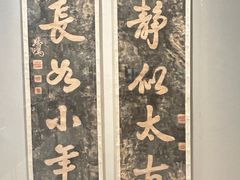 靜似太古
長如小年